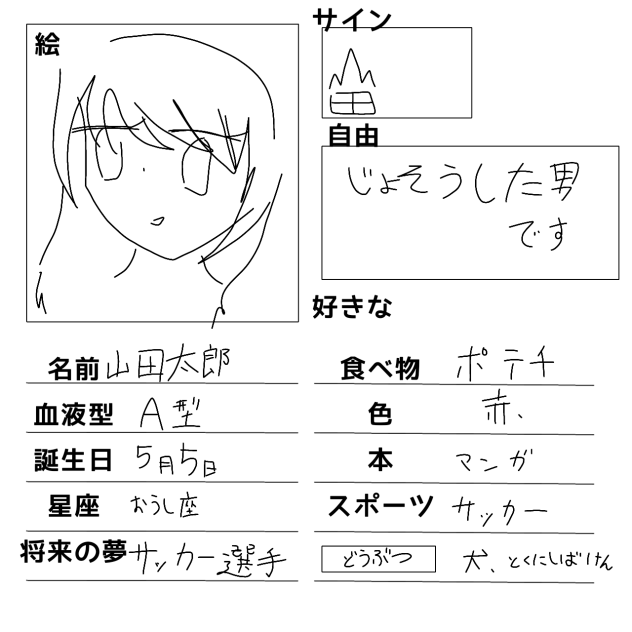 絵
サイン
自由
じょそうした男
です
好きな
名前 山田太郎
食べ物 ポテチ
血液型 A型
色 赤、
誕生日 5月5日
本 マンガ
星座 おうし座
スポーツ サッカー
将来の夢 サッカー選手
どうぶつ 犬、とくにしばけん